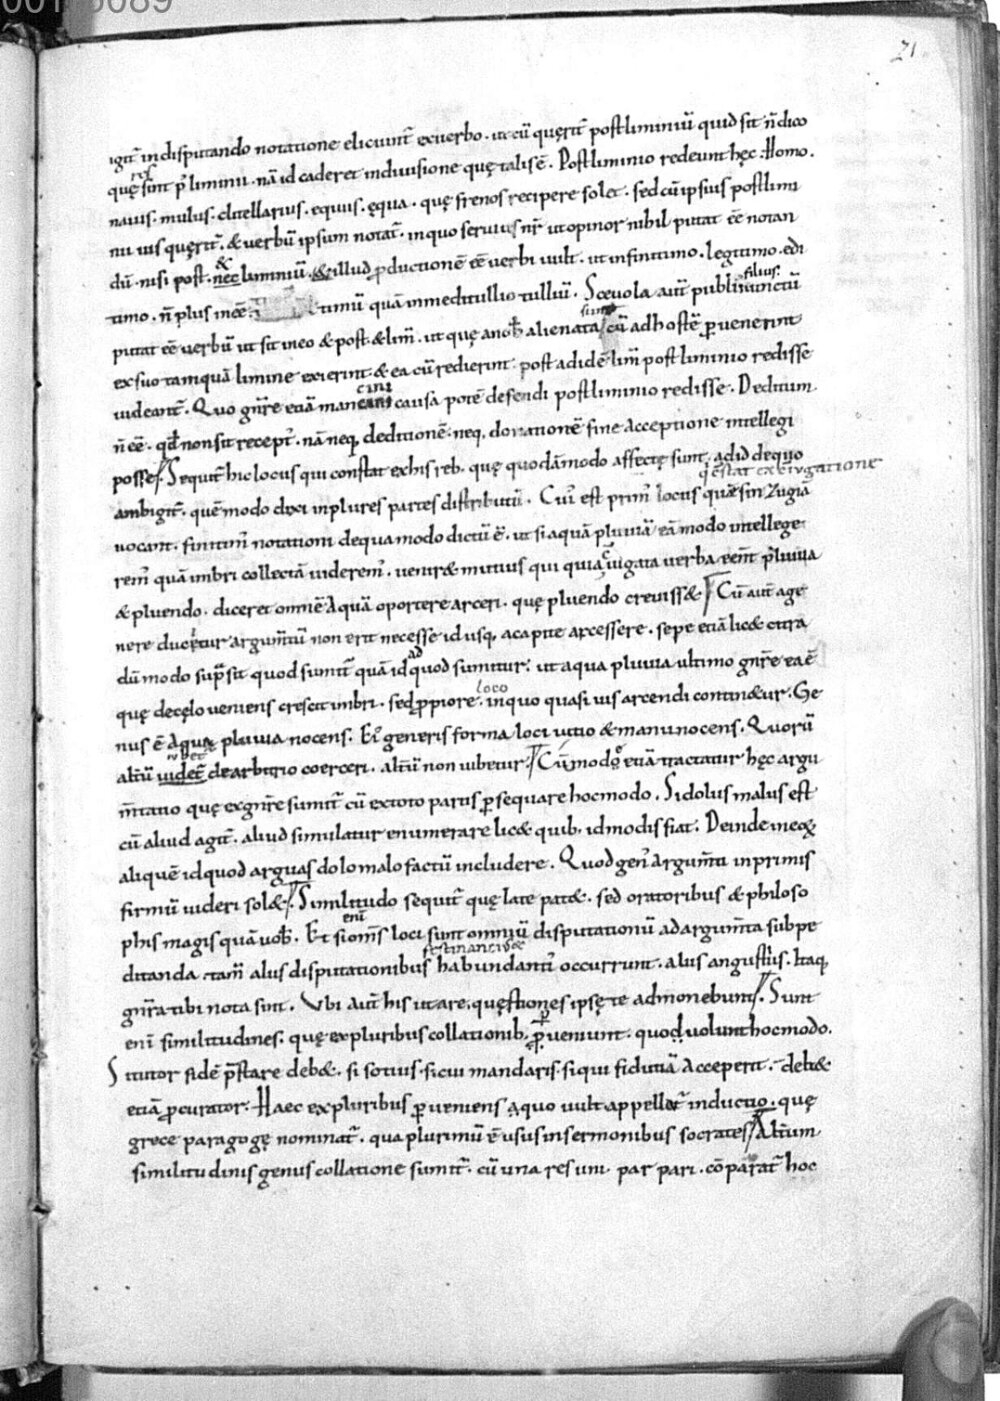 21
igit̄ in disputando notatione eliciunt̄ ex uerbo. ut cū quęrit̄ postliminiū quid sit n̄ dico
res
quę sint p̄liminii. nā id caderet in diuisione quę talis ē. Postliminio redeunt hęc. Homo.
nauis. mulus. clitellarius. equus. ęqua. quę frenos recipere solet. sed cū ipsius postlimi
nii uis quęrit̄. & uerbū ipsum notat̄. in quo seruius nr̄ ut opinor nihil putat eē notan
&
dū. nisi post. nec liminiū. & illud ꝓductionē eē uerbi uult. ut in finitimo. legitimo. edi
filius.
timo. n̄ plus inēē timū quā in meditullio tulliū. Scęuola aut̄ publii iunctū
sunt
putat eē uerbū ut sit in eo & post & lim̄. ut quę a nob̄ alienata cū ad hostē ꝑuenerint
ex suo tamquā limine exierint & ea cū redierint. post ad idē lim̄ postliminio redisse
cini
uideant̄. Quo gn̄re etiā mancini causa potē defendi postliminio redisse. Deditum
n̄ eē. qđ non sit recept̄. nā neq, deditionē. neq, donationē sine acceptione intellegi
posse. Sequit̄ hic locus qui constat ex his reb. quę quodāmodo affectę sunt. ad id de quo
q̄ estat ex coiugatione
ambigit̄. quē modo dixi in plures partes distributū. Cui est prim̄ locus quę sinzugia
uocant. finitim̄ notationi de qua modo dictū ē. ut si aquā pluuiā eā modo intellege
rem̄ quā imbri collectā uiderem̄. ueniret mutius qui quia iugata uerba eent̄ pluuia
& pluendo. diceret omnē aquā oportere arceri. quę pluendo creuiss&. Cū aut̄ a ge
nere ducetur argum̄tū non erit necesse id usq, a capite arcessere. sepe etiā lic& citra
ad
dū modo supra sit quod sumit̄ quā id quod sumitur. ut aqua pluuia ultimo gn̄re ea ē
loco
quę de cęlo ueniens crescit imbri. sed ꝓpiore. in quo quasi ius arcendi contin&ur. Ge
nus ē aqua pluuia nocens. Ei generis forma loci uitio & manu nocens. Quorū
iubet̄
altū uidet̄ de arbitrio coerceri. altū non iubetur. Cū modo etiā tractatur hęc argu
m̄tatio quę ex gn̄re sumit̄ cū ex toto partis ꝑsequare hoc modo. Si dolus malus est
cū aliud agit̄. aliud simulatur enumerare lic& quib. id modis fiat. Deinde in eoꝝ
aliquē id quod arguas dolo malo factū includere. Quod gen̄ argum̄ti in primis
firmū uideri sol&. Similitudo sequit̄ quę late pat&. sed oratoribus & philoso
eni
phis magis quā uob̄. Et si om̄s loci sunt omniū disputationū ad argum̄ta subpe
ditanda. tam̄ aliis disputationibus habundanti occurrunt. aliis angustius. Itaq,
gn̄ra tibi nota sint. Vbi aut̄ his utare. quęstiones ipsę te admonebunt. Sunt
eni similitudines. quę ex pluribus collationib. ꝑueniunt. quod uolunt hoc modo.
Si tutor fidē p̄stare deb&. si sotius. si cui mandaris. si qui fiduciā acceperit. deb&
etiā ꝓcurator. Haec ex pluribus ꝑueniens a quo uult appellat̄ inductio. quę
grece paragogę nominat̄. qua plurimū ē usus in sermonibus socrates. Altūm
similitudinis genus collatione sumit̄. cū una res uni. par pari. cōparat̄ hoc